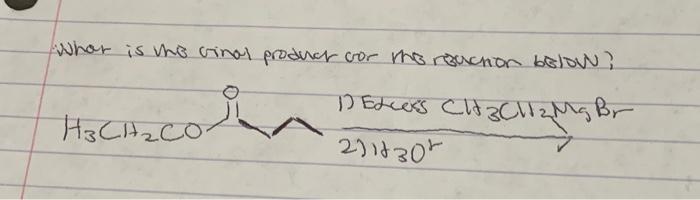 What is the final product for the reaction below?
O
1) Excess CH3CH2MgBr
H3CH2CO
2) H3O+